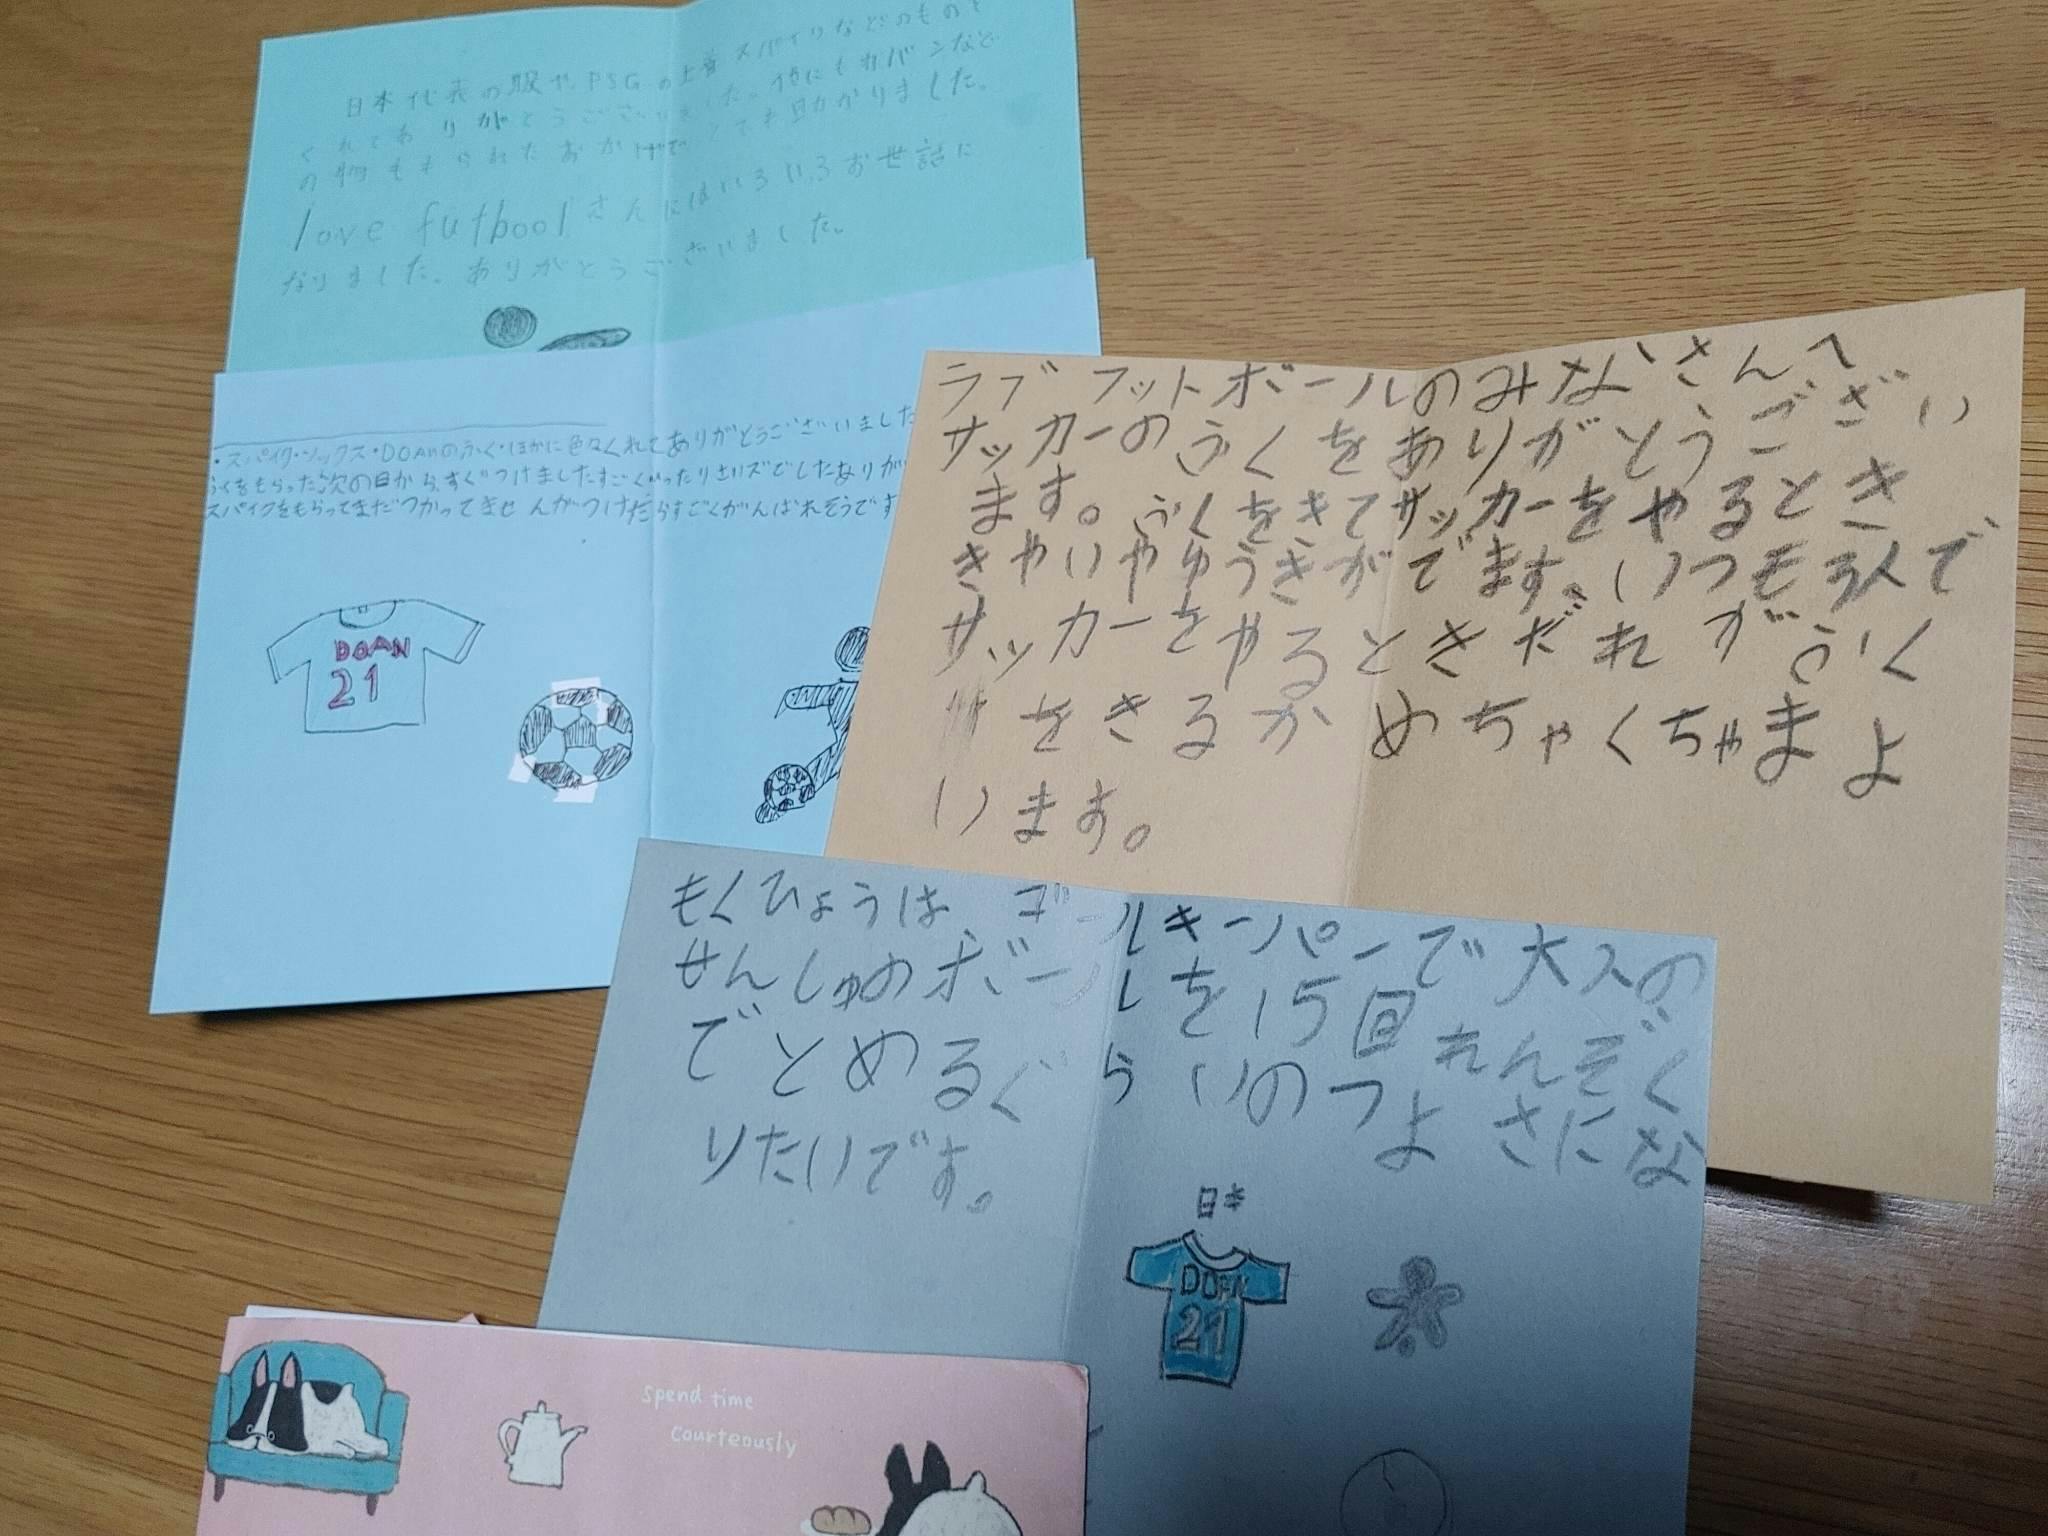 日本代表の服や、PSGの上着スパイクなどのものを
くれてありがとうございました。他にもカバンなど
の物ももらえたおかげでとても助かりました。
love futboolさんにはいろいろお世話に
なりました。ありがとうございました。
・スパイク・ソックス・DOANのふく・ほかに色々くれてありがとうございました
ふくをもらった次の日から、すぐつけましたすごくぴったりさいズでしたありが
スパイクをもらってまだつかってませんがつけたらすごくがんばれそうです
DOAN
21
ラブフットボールのみなさんへ
サッカーのふくをありがとうござい
ます。ふくをきてサッカーをやるとき
きやいやゆうきがでます。いつも3人で
サッカーをやるときだれがふく
をきるかめちゃくちゃまよ
います。
もくひょうは、ゴールキーパーで大人の
せんしゅのボールを15回れんぞく
でとめるぐらいのつよさにな
りたいです。
日本
DOAN
21
spend time
courteously